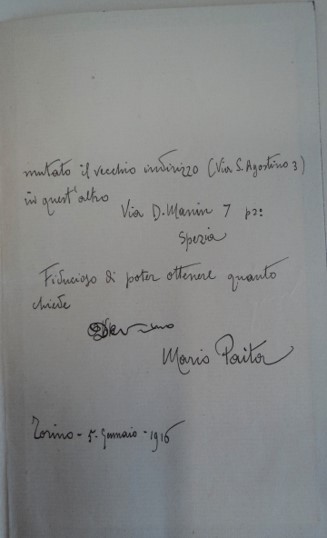 mutato il vecchio indirizzo (Via S. Agostino 3)
in quest'altro
Via D. Manin 7 p2º
Spezia
Fiducioso di poter ottenere quanto
chiede
Mario
Torino - 5. Gennaio - 1916